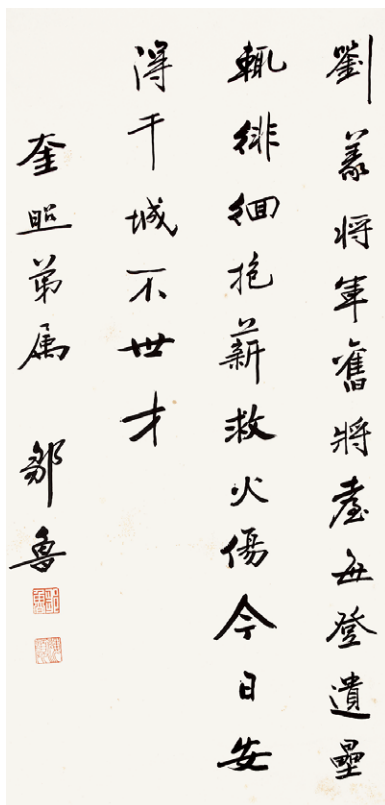 劉義将軍舊將臺每登遺壘
輒徘徊抱薪救火傷今日安
得干城不世才
奎照弟属 鄒魯